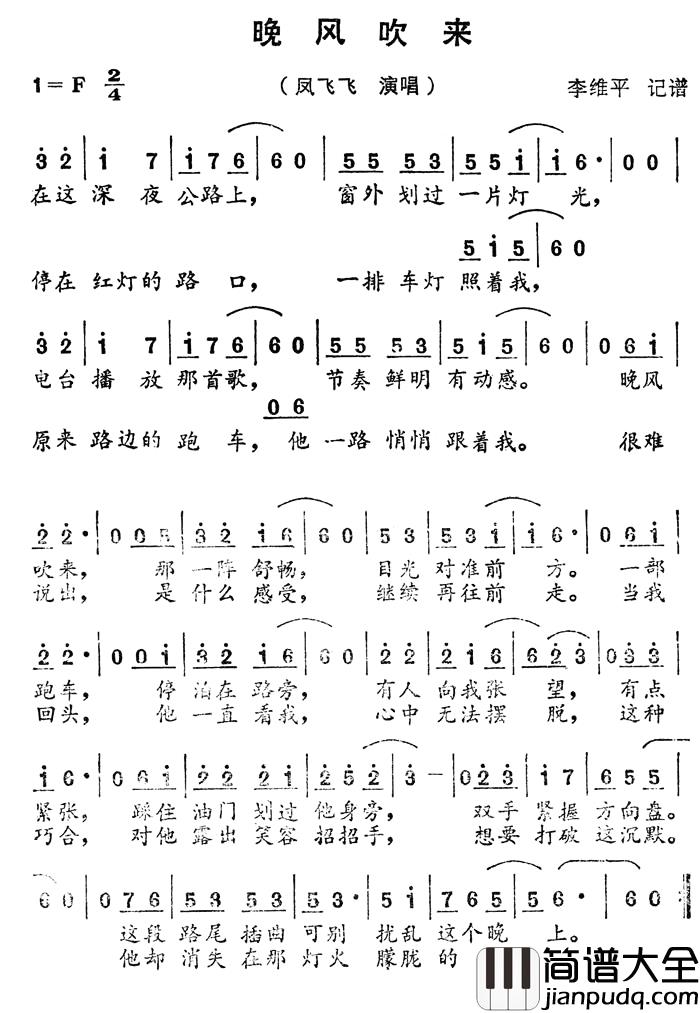 晚风吹来
1=F 2/4 （凤飞飞 演唱） 李维平 记谱
3 2 | 1 7 | 1 7 6 | 6 0 | 5 5 5 3 | 5 5 1 | 1 6· | 0 0
在这 深 夜 公路上， 窗外 划过 一片灯 光，
5 1 5 | 6 0
停在 红灯的 路 口， 一排 车灯 照着我，
3 2 | 1 7 | 1 7 6 | 6 0 | 5 5 5 3 | 5 1 5 | 6 0 | 0 6 1
电台 播 放 那首歌， 节奏 鲜明 有动感。 晚风
0 6
原来 路边的 跑 车， 他 一路 悄悄 跟着我。 很难
2 2· | 0 0 5 | 3 2 1 6 | 6 0 | 5 3 | 5 3 1 | 1 6· | 0 6 1
吹来， 那 一阵 舒畅， 目光 对准前 方。 一部
说出， 是 什么 感受， 继续 再往前 走。 当我
2 2· | 0 0 1 | 3 2 1 6 | 6 0 | 2 2 | 2 1 6 | 6 2 3 | 0 3 3
跑车， 停 泊在 路旁， 有人 向我张 望， 有点
回头， 他 一直 看我， 心中 无法摆 脱， 这种
1 6· | 0 6 1 | 2 2 2 1 | 2 5 2 | 3 — | 0 2 3 | 1 7 | 6 5 5
紧张， 踩住 油门 划过 他身旁， 双手 紧握 方向盘。
巧合， 对他 露出 笑容 招招手， 想要 打破 这沉默。
6 0 | 0 7 6 | 5 3 5 3 | 5 3· | 5 1 | 7 6 5 | 5 6· | 6 0 ‖
这段 路尾 插曲 可别 扰乱 这个晚 上。
他却 消失 在那 灯火 朦胧 的
简谱大全
jianpudq.com